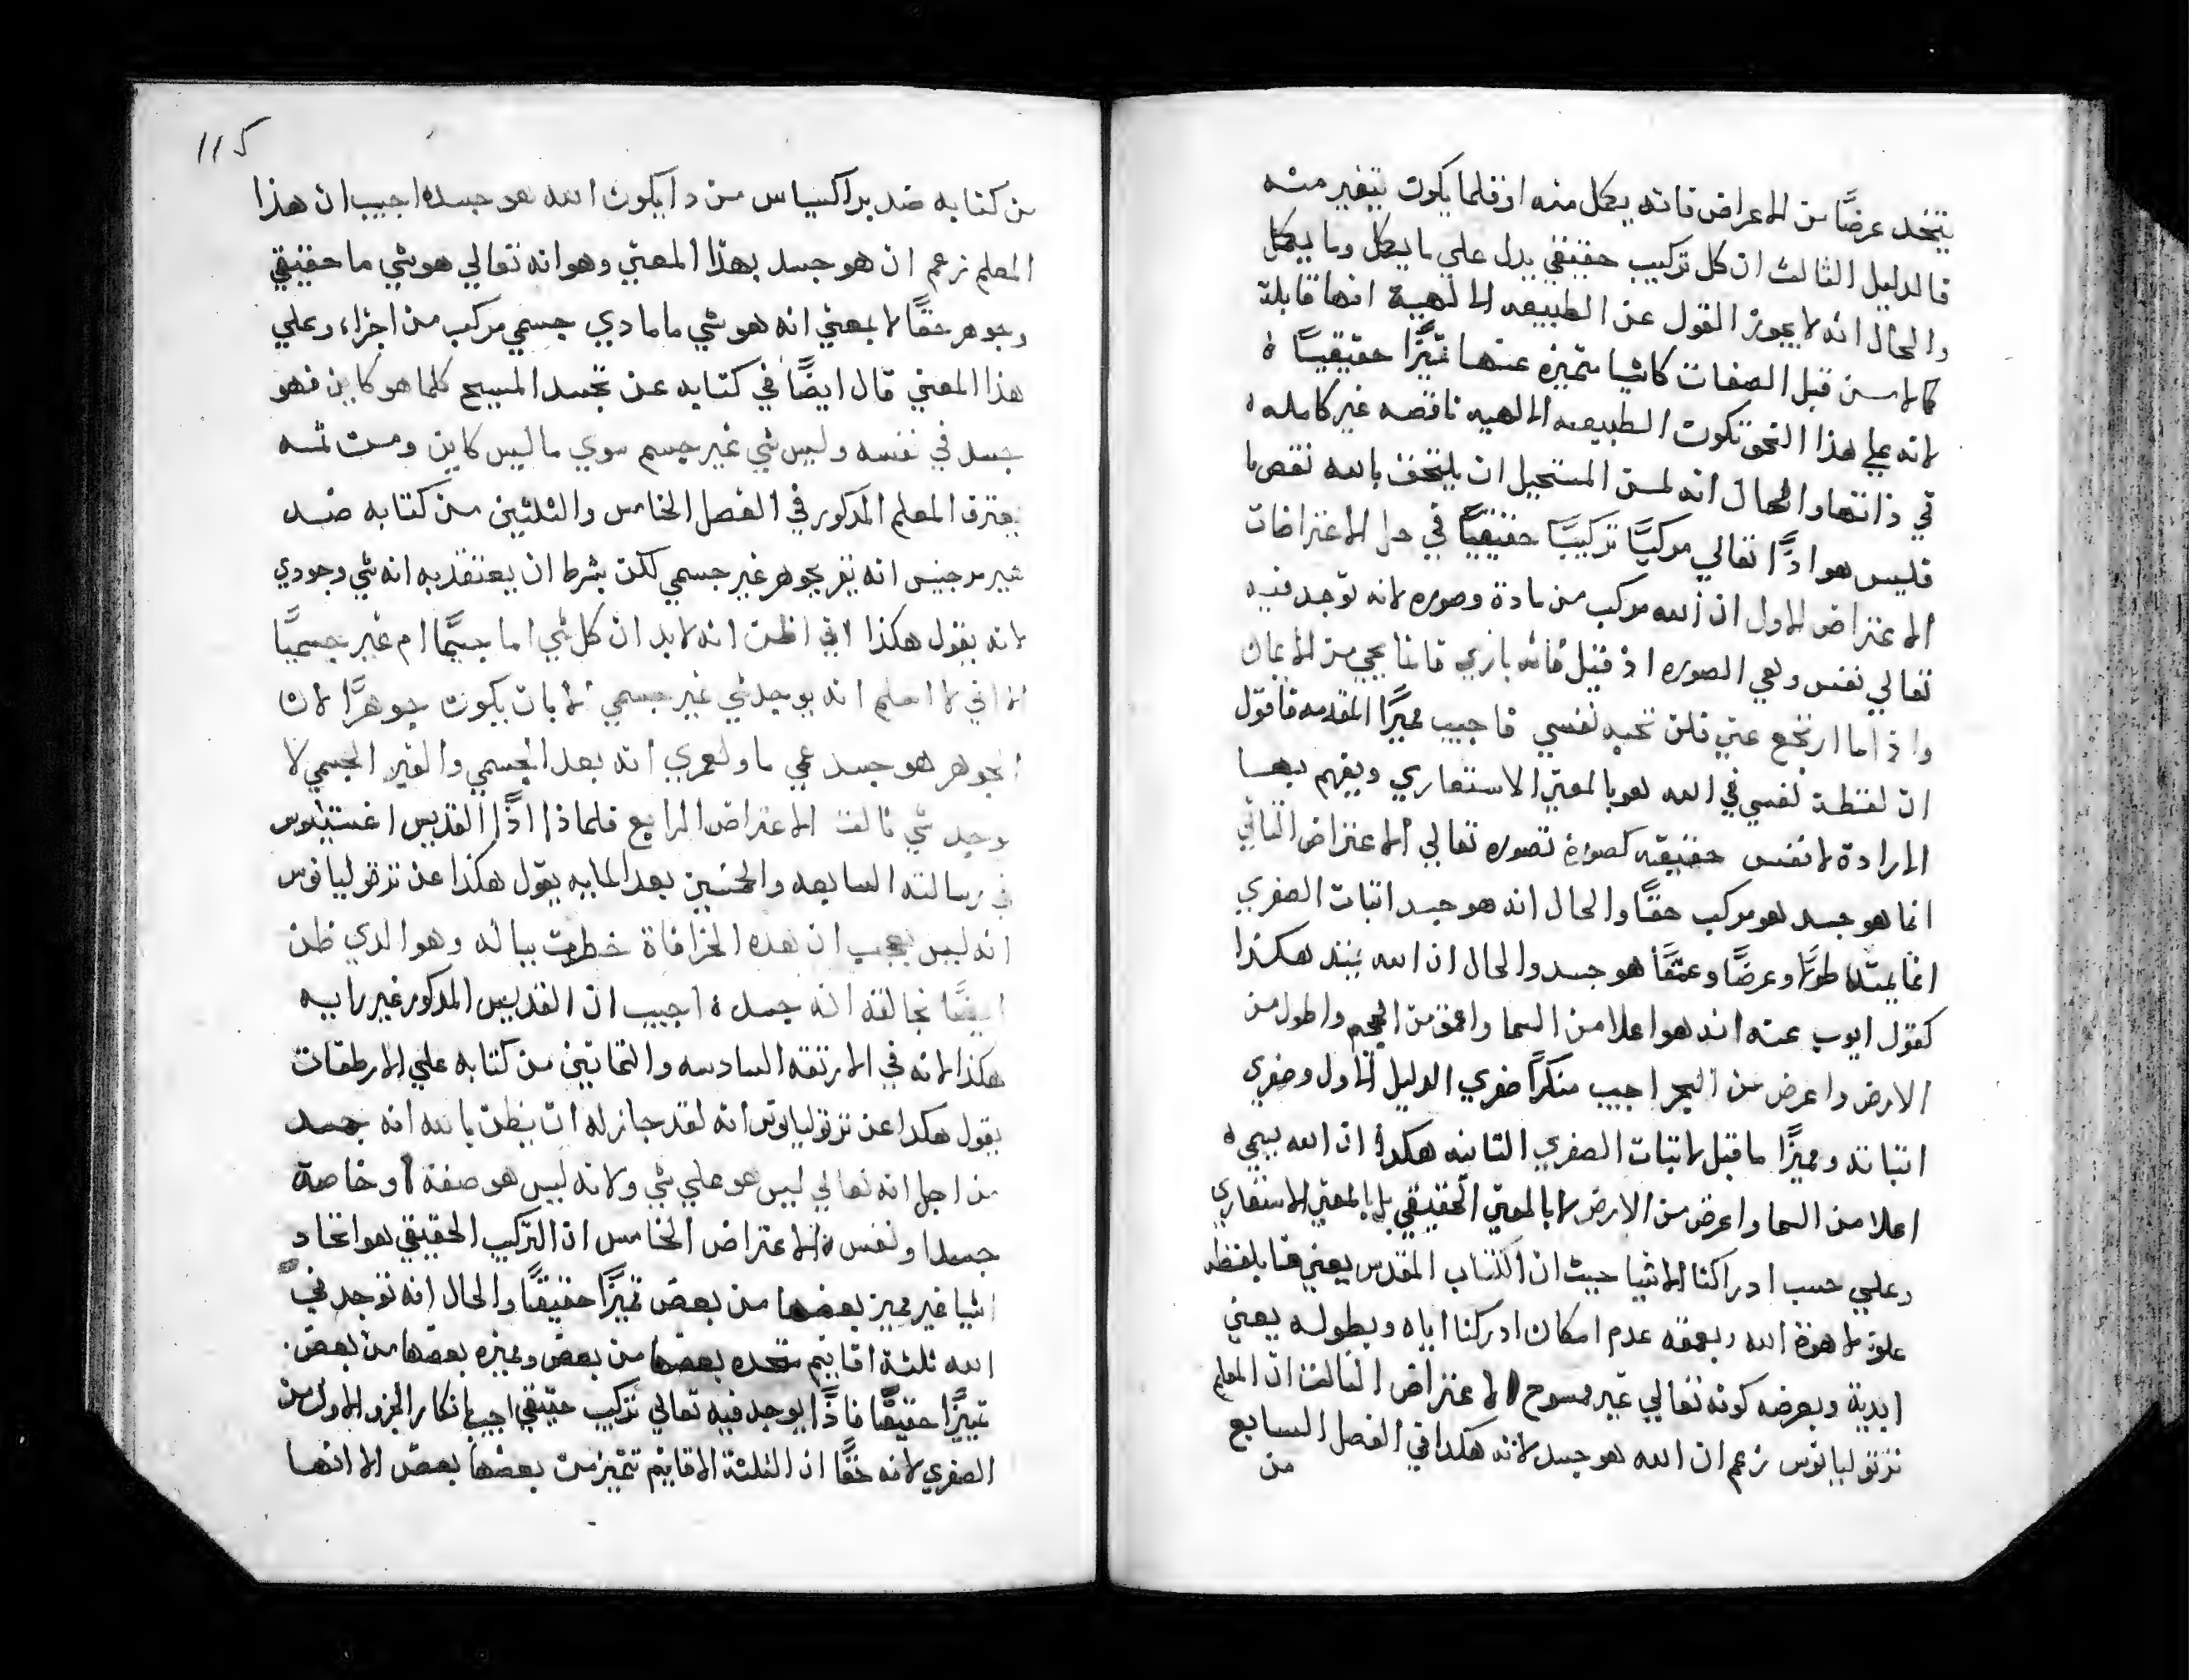 يتخد عرضًا من الاعراض فانه يكمل منه او قلما يكون يتغير منه
فالدليل الثالث ان كل تركيب حقيقي يدل علي ما يكمل وما يكمل
والحال انه لا يجوز القول عن الطبيعه الالهية انها قابلة
كمالا من قبل الصفات كاشيا متميزه عنها تميزًا حقيقيًا ه
لانه علي هذا النحو تكون الطبيعه الالهيه ناقصه غير كامله ه
في ذاتها والحال انه لمن المستحيل ان يلتحق بالله نقص ما
فليس هو اذًا تعالي مركبًا تركيبًا حقيقيًا في حل الاعتراضات
الاعتراض الاول ان الله مركب من مادة وصوره لانه توجد فيه
تعالي نفس وهي الصوره اذ قيل فاما باري فانما يحيي من الايمان
واذا ما ارتجع عني فلن تحبه نفسي فاجيب مميزًا المقدمه فاقول
ان لفظة نفسي في الله هو بالمعني الاستعاري ويفهم بها
الارادة لا نفس حقيقه كصورة تصوره تعالي الاعتراض الثاني
انما هو جسد هو مركب حقًا والحال انه هو جسد اثبات الصغري
انما يمتد طولًا وعرضًا وعمقًا هو جسد والحال ان الله يمتد هكذا
كقول ايوب عنه انه هو اعلا من السما واعمق من الجحيم واطول من
الارض واعرض من البحر اجيب منكرًا صغري الدليل الاول وصغري
اثباته ومميزًا ما قبل لاثبات الصغري الثانيه هكذا ان الله يسمي ه
اعلا من السما واعرض من الارض لا بالمعني الحقيقي بل بالمعني الاستعاري
وعلي حسب ادراكنا الاشيا حيث ان الكتاب المقدس يعني هنا بلفظه
علو لاهوة الله وبعمقه عدم امكان ادركنا اياه وبطوله يعني
ابدية وبعرضه كونه تعالي غير ممسوح الاعتراض الثالث ان المعلم
ترتوليانوس زعم ان الله هو جسد لانه هكذا في الفصل السابع
من
115
من كتابه ضد براكسياس من دا يكون الله هو جسده اجيب ان هذا
المعلم زعم ان هو جسد بهذا المعني وهو انه تعالي هو شي ما حقيقي
وجوهر حقًا لا بمعني انه هو شي ما مادي جسمي مركب من اجزاء وعلي
هذا المعني قال ايضًا في كتابه عن تجسد المسيح كلما هو كاين فهو
جسد في نفسه وليس شي غير جسم سوي ما ليس كاين ومن ثمه
يعترف المعلم المذكور في الفصل الخامس والثلثين من كتابه ضد
هيرموجنيس انه يقر بجوهر غير جسمي لكن بشرط ان يعتقد به انه شي وجودي
لانه يقول هكذا اني اظن انه لا بد ان كل شي اما جسميًا ام غير جسميًا
الا اني لا اعلم انه يوجد شي غير جسمي الا بان يكون جوهرًا لان
الجوهر هو جسد عمي ما ولعمري انه بعد الجسمي والغير الجسمي لا
يوجد شي ثالث الاعتراض الرابع فلماذا اذًا القديس اغستينوس
في رسالته السابعه والخمسين بعد المايه يقول هكذا عن ترتوليانوس
انه ليس بعجب ان هذه الخرافاة خطرت بباله وهو الذي ظن
ايضًا بخالقه انه جسد ه اجيب ان القديس المذكور غير رايه
هكذا لانه في الارتقه السادسه والثمانين من كتابه علي الارطقات
يقول هكدا عن ترتوليانوس انه لقد جاز له ان يظن بالله انه جسد
من اجل انه تعالي ليس هو علي شي ولانه ليس هو صفة او خاصة
جسد او نفس ه الاعتراض الخامس ان التركيب الحقيقي هو اتحاد
اشيا غير مميز بعضها من بعض تميزًا حقيقيًا والحال انه توجد في
الله ثلثة اقانيم متحده بعضها من بعض ومميزه بعضها من بعض
تميزًا حقيقيًا فاذًا يوجد فيه تعالي تركيب حقيقي اجيب بانكار الجزو الاول من
الصغري لانه حقًا ان الثلثة الاقانيم تتميز من بعضها بعض الا انها